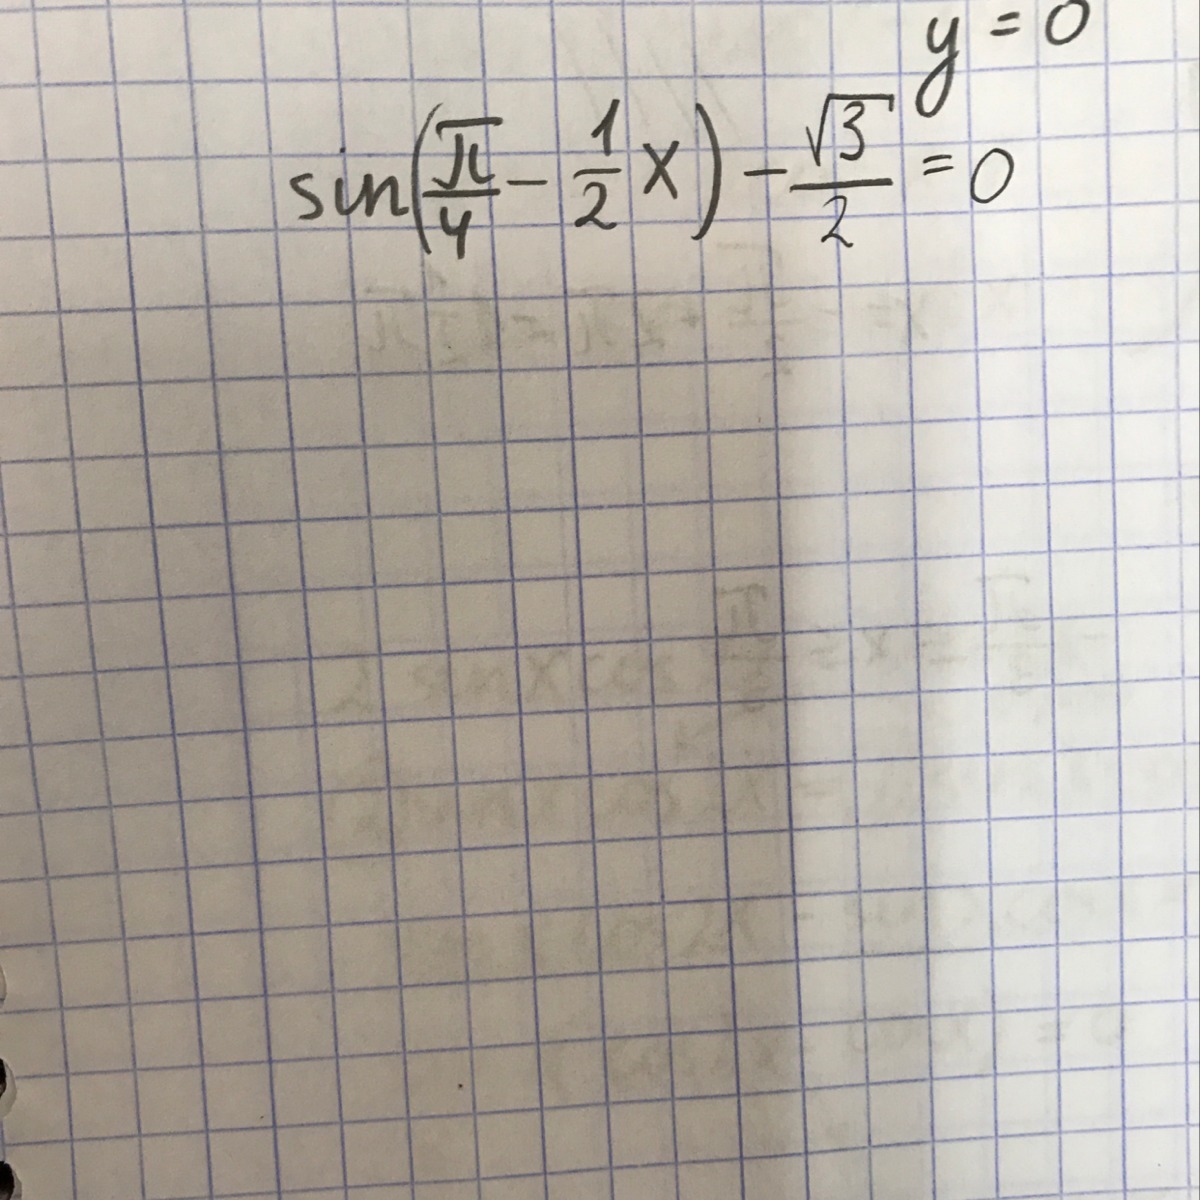 y = 0
sin(π/4 - 1/2 x) - √3/2 = 0